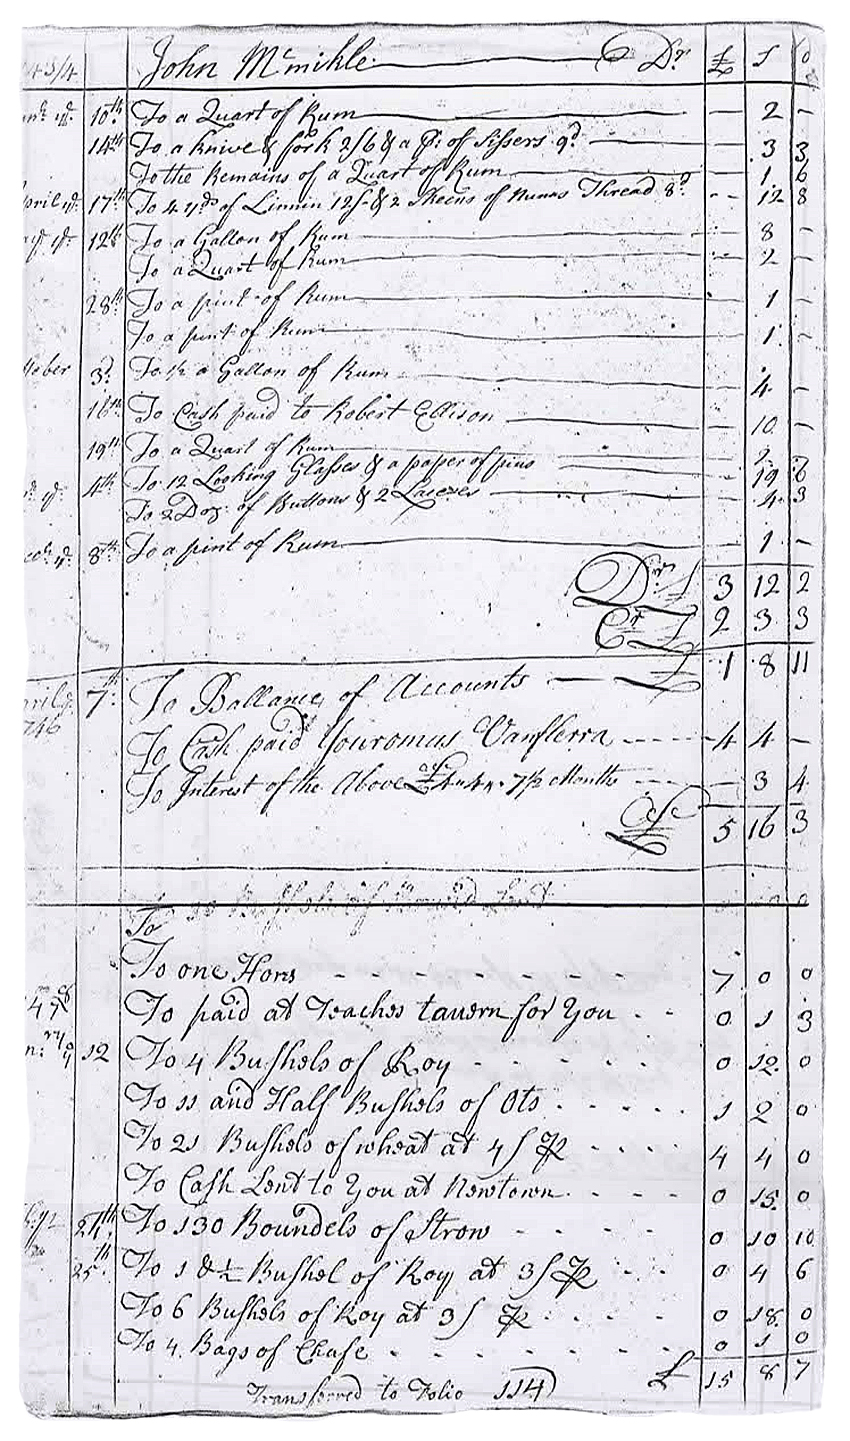 43/4 John Mcmikle Dr £ s d
10th To a Quart of Rum — 2 —
14th To a knive & fork 2/6 & a pr. of sissers 9d — 3 3
To the Remains of a Quart of Rum — 1 6
pril ye 17th To 4 yds of Linnin 12/ & 2 Skeens of Thread 8d — 12 8
ay ye 12th To a Gallon of Rum — 8 —
To a Quart of Rum — 2 —
28th To a pint of Rum — 1 —
To a pint of Rum — 1 —
tober 3d To ½ a Gallon of Rum — 4 —
16th To Cash paid to Robert Ellison — 10 —
19th To a Quart of Rum — 2 —
4th To 12 Looking Glasses & a paper of pins — 19 6
To 2 Doz: of Buttons & 2 Laceses — 4 3
ec: ye 8th To a pint of Rum — 1 —
Dr £ 3 12 2
Cr £ 2 3 3
£ 1 8 11
pril ye 7th To Ballance of Accounts
746
To Cash paid Youromus Vanflerra 4 4 —
To Interest of the Above £4 " 4 " 7½ Months — 3 4
£ 5 16 3
To
To one Hors 7 0 0
478 To paid at Teaches tavern for You 0 1 3
12 To 4 Bushels of Roy 0 12 0
To 11 and Half Bushels of Ots 1 2 0
To 21 Bushels of wheat at 4/ P 4 4 0
To Cash Lent to You at Newtown 0 15 0
24th To 130 Boundels of Strow 0 10 10
25th To 1 & ½ Bushel of Roy at 3/ P 0 4 6
To 6 Bushels of Roy at 3/ P 0 18 0
To 4 Bags of Chafe 0 1 0
£ 15 8 7
Transferred to Folio 114